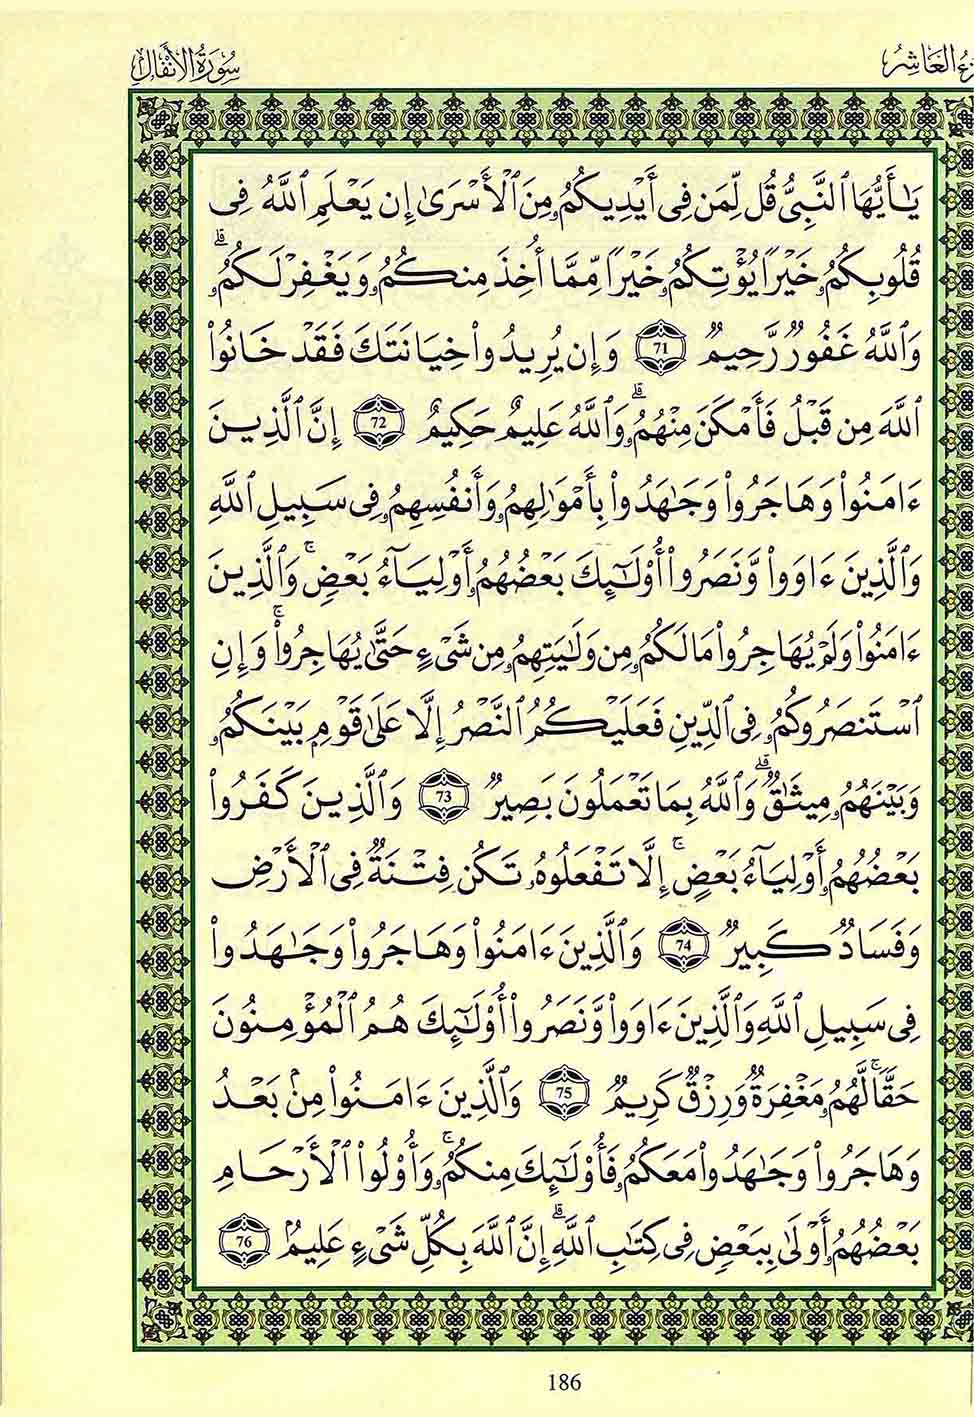 سُورَةُ الأَنفَالِ
الجُزْءُ العَاشِرُ
يَـٰٓأَيُّهَا ٱلنَّبِىُّ قُل لِّمَن فِى أَيْدِيكُمُۥ مِنَ ٱلْأَسْرَىٰٓ إِن يَعْلَمِ ٱللَّهُ فِى
قُلُوبِكُمُۥ خَيْرًا يُؤْتِكُمُۥ خَيْرًا مِّمَّا أُخِذَ مِنكُمُۥ وَيَغْفِرْ لَكُمُۥ ۗ
وَٱللَّهُ غَفُورٌ رَّحِيمٌ 71 وَإِن يُرِيدُوا۟ خِيَانَتَكَ فَقَدْ خَانُوا۟
ٱللَّهَ مِن قَبْلُ فَأَمْكَنَ مِنْهُمُۥ ۗ وَٱللَّهُ عَلِيمٌ حَكِيمٌ 72 إِنَّ ٱلَّذِينَ
ءَامَنُوا۟ وَهَاجَرُوا۟ وَجَـٰهَدُوا۟ بِأَمْوَٰلِهِمُۥ وَأَنفُسِهِمُۥ فِى سَبِيلِ ٱللَّهِ
وَٱلَّذِينَ ءَاوَوا۟ وَّنَصَرُوا۟ أُو۟لَـٰٓئِكَ بَعْضُهُمُۥ أَوْلِيَآءُ بَعْضٍ ۚ وَٱلَّذِينَ
ءَامَنُوا۟ وَلَمْ يُهَاجِرُوا۟ مَا لَكُمُۥ مِن وَلَـٰيَتِهِمُۥ مِن شَىْءٍ حَتَّىٰ يُهَاجِرُوا۟ ۚ وَإِنِ
ٱسْتَنصَرُوكُمُۥ فِى ٱلدِّينِ فَعَلَيْكُمُ ٱلنَّصْرُ إِلَّا عَلَىٰ قَوْمٍۭ بَيْنَكُمُۥ
وَبَيْنَهُمُۥ مِيثَـٰقٌ ۗ وَٱللَّهُ بِمَا تَعْمَلُونَ بَصِيرٌ 73 وَٱلَّذِينَ كَفَرُوا۟
بَعْضُهُمُۥ أَوْلِيَآءُ بَعْضٍ ۚ إِلَّا تَفْعَلُوهُۥ تَكُن فِتْنَةٌ فِى ٱلْأَرْضِ
وَفَسَادٌ كَبِيرٌ 74 وَٱلَّذِينَ ءَامَنُوا۟ وَهَاجَرُوا۟ وَجَـٰهَدُوا۟
فِى سَبِيلِ ٱللَّهِ وَٱلَّذِينَ ءَاوَوا۟ وَّنَصَرُوا۟ أُو۟لَـٰٓئِكَ هُمُ ٱلْمُؤْمِنُونَ
حَقًّا ۚ لَّهُمُۥ مَغْفِرَةٌ وَرِزْقٌ كَرِيمٌ 75 وَٱلَّذِينَ ءَامَنُوا۟ مِنۢ بَعْدُ
وَهَاجَرُوا۟ وَجَـٰهَدُوا۟ مَعَكُمُۥ فَأُو۟لَـٰٓئِكَ مِنكُمُۥ ۚ وَأُو۟لُوا۟ ٱلْأَرْحَامِ
بَعْضُهُمُۥ أَوْلَىٰ بِبَعْضٍ فِى كِتَـٰبِ ٱللَّهِ ۗ إِنَّ ٱللَّهَ بِكُلِّ شَىْءٍ عَلِيمٌۢ 76
186